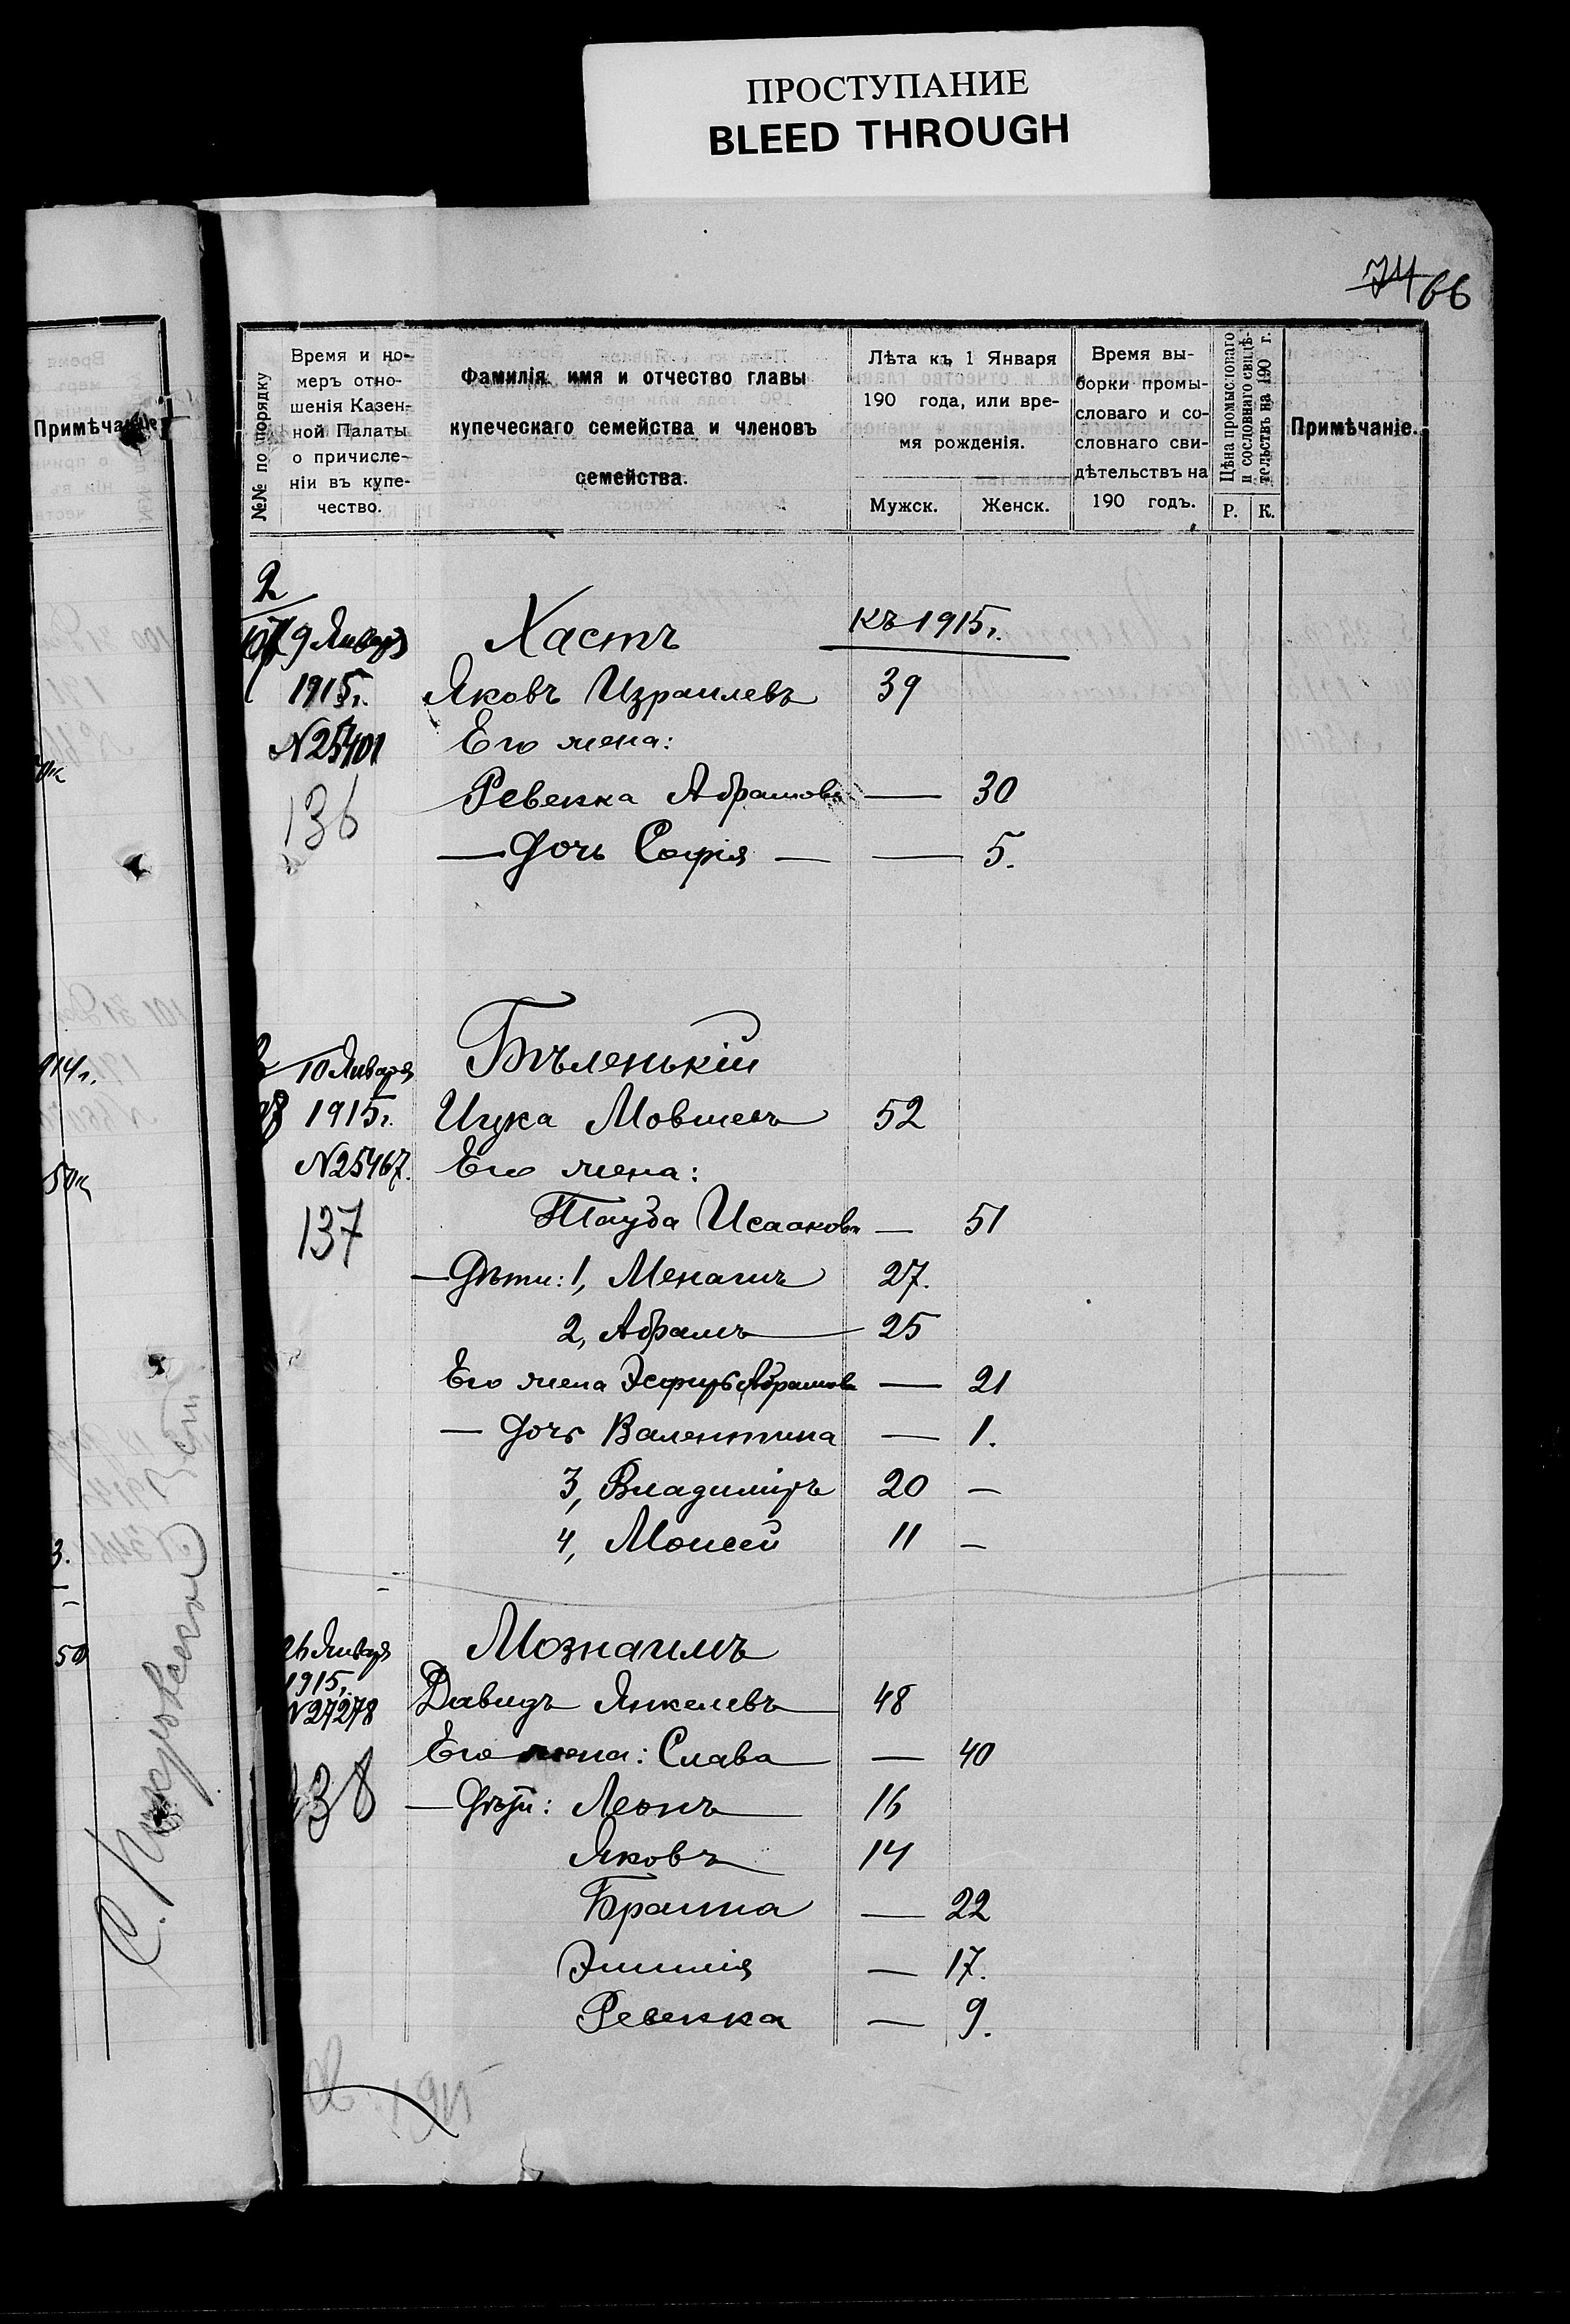 ПРОСТУПАНИЕ
BLEED THROUGH
74 66
Примѣчаніе
№№ по порядку
Время и но-
меръ отно-
шенія Казен-
ной Палаты
о причисле-
ніи въ купе-
чество.
Фамилія, имя и отчество главы
купеческаго семейства и членовъ
семейства.
Лѣта къ 1 Января
190 года, или вре-
мя рожденія.
Мужск. Женск.
Время вы-
борки промы-
словаго и со-
словнаго сви-
дѣтельствъ на
190 годъ.
Цѣна промысловаго
и сословнаго свидѣ-
тельствъ на 190 г.
Р. К.
Примѣчаніе.
2
9 Января Хастъ къ 1915г.
1915г. Яковъ Израилевъ 39
N25401 Его жена:
Ревекка Абрамова — 30
136
— Дочь Софія — — 5.
10 Января Бѣленькій
1915г. Ицка Мовшевъ 52
N25467. Его жена:
Тауба Исааков — 51
137
— Дѣти: 1, Менаимъ 27.
2, Абрамъ 25
Его жена Эсфирь Абрамов — 21
— Дочь Валентина — 1.
3, Владиміръ 20 —
4, Моисей 11 —
26 Января Мознаимъ
1915г.
N27278 Давидъ Янкелевъ 48
Его жена: Слава — 40
138
— Дѣти: Леонъ 16
Яковъ 14
Браина — 22
Эмилія — 17.
Ревекка — 9.
914г.
50к
3.
50